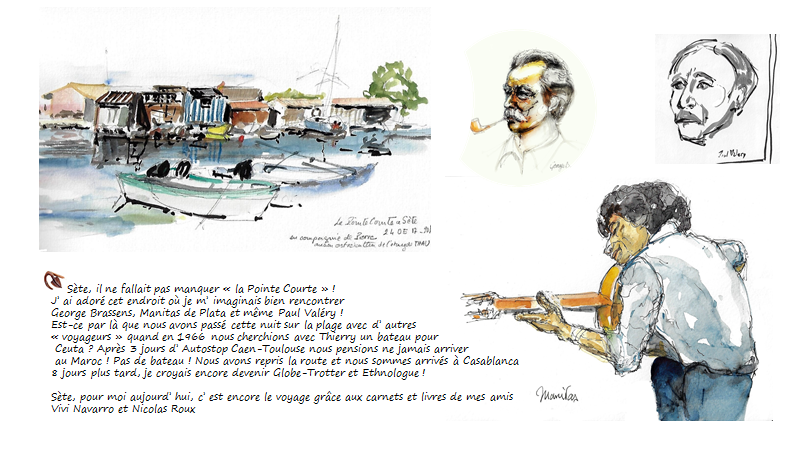 La Pointe Courte à Sète
en compagnie de Pierre
Paul Valery
Manitas
Sète, il ne fallait pas manquer « la Pointe Courte » !
J' ai adoré cet endroit où je m' imaginais bien rencontrer
George Brassens, Manitas de Plata et même Paul Valéry !
Est-ce par là que nous avons passé cette nuit sur la plage avec d' autres
« voyageurs » quand en 1966 nous cherchions avec Thierry un bateau pour
Ceuta ? Après 3 jours d' Autostop Caen-Toulouse nous pensions ne jamais arriver
au Maroc ! Pas de bateau ! Nous avons repris la route et nous sommes arrivés à Casablanca
8 jours plus tard, je croyais encore devenir Globe-Trotter et Ethnologue !
Sète, pour moi aujourd' hui, c' est encore le voyage grâce aux carnets et livres de mes amis
Vivi Navarro et Nicolas Roux